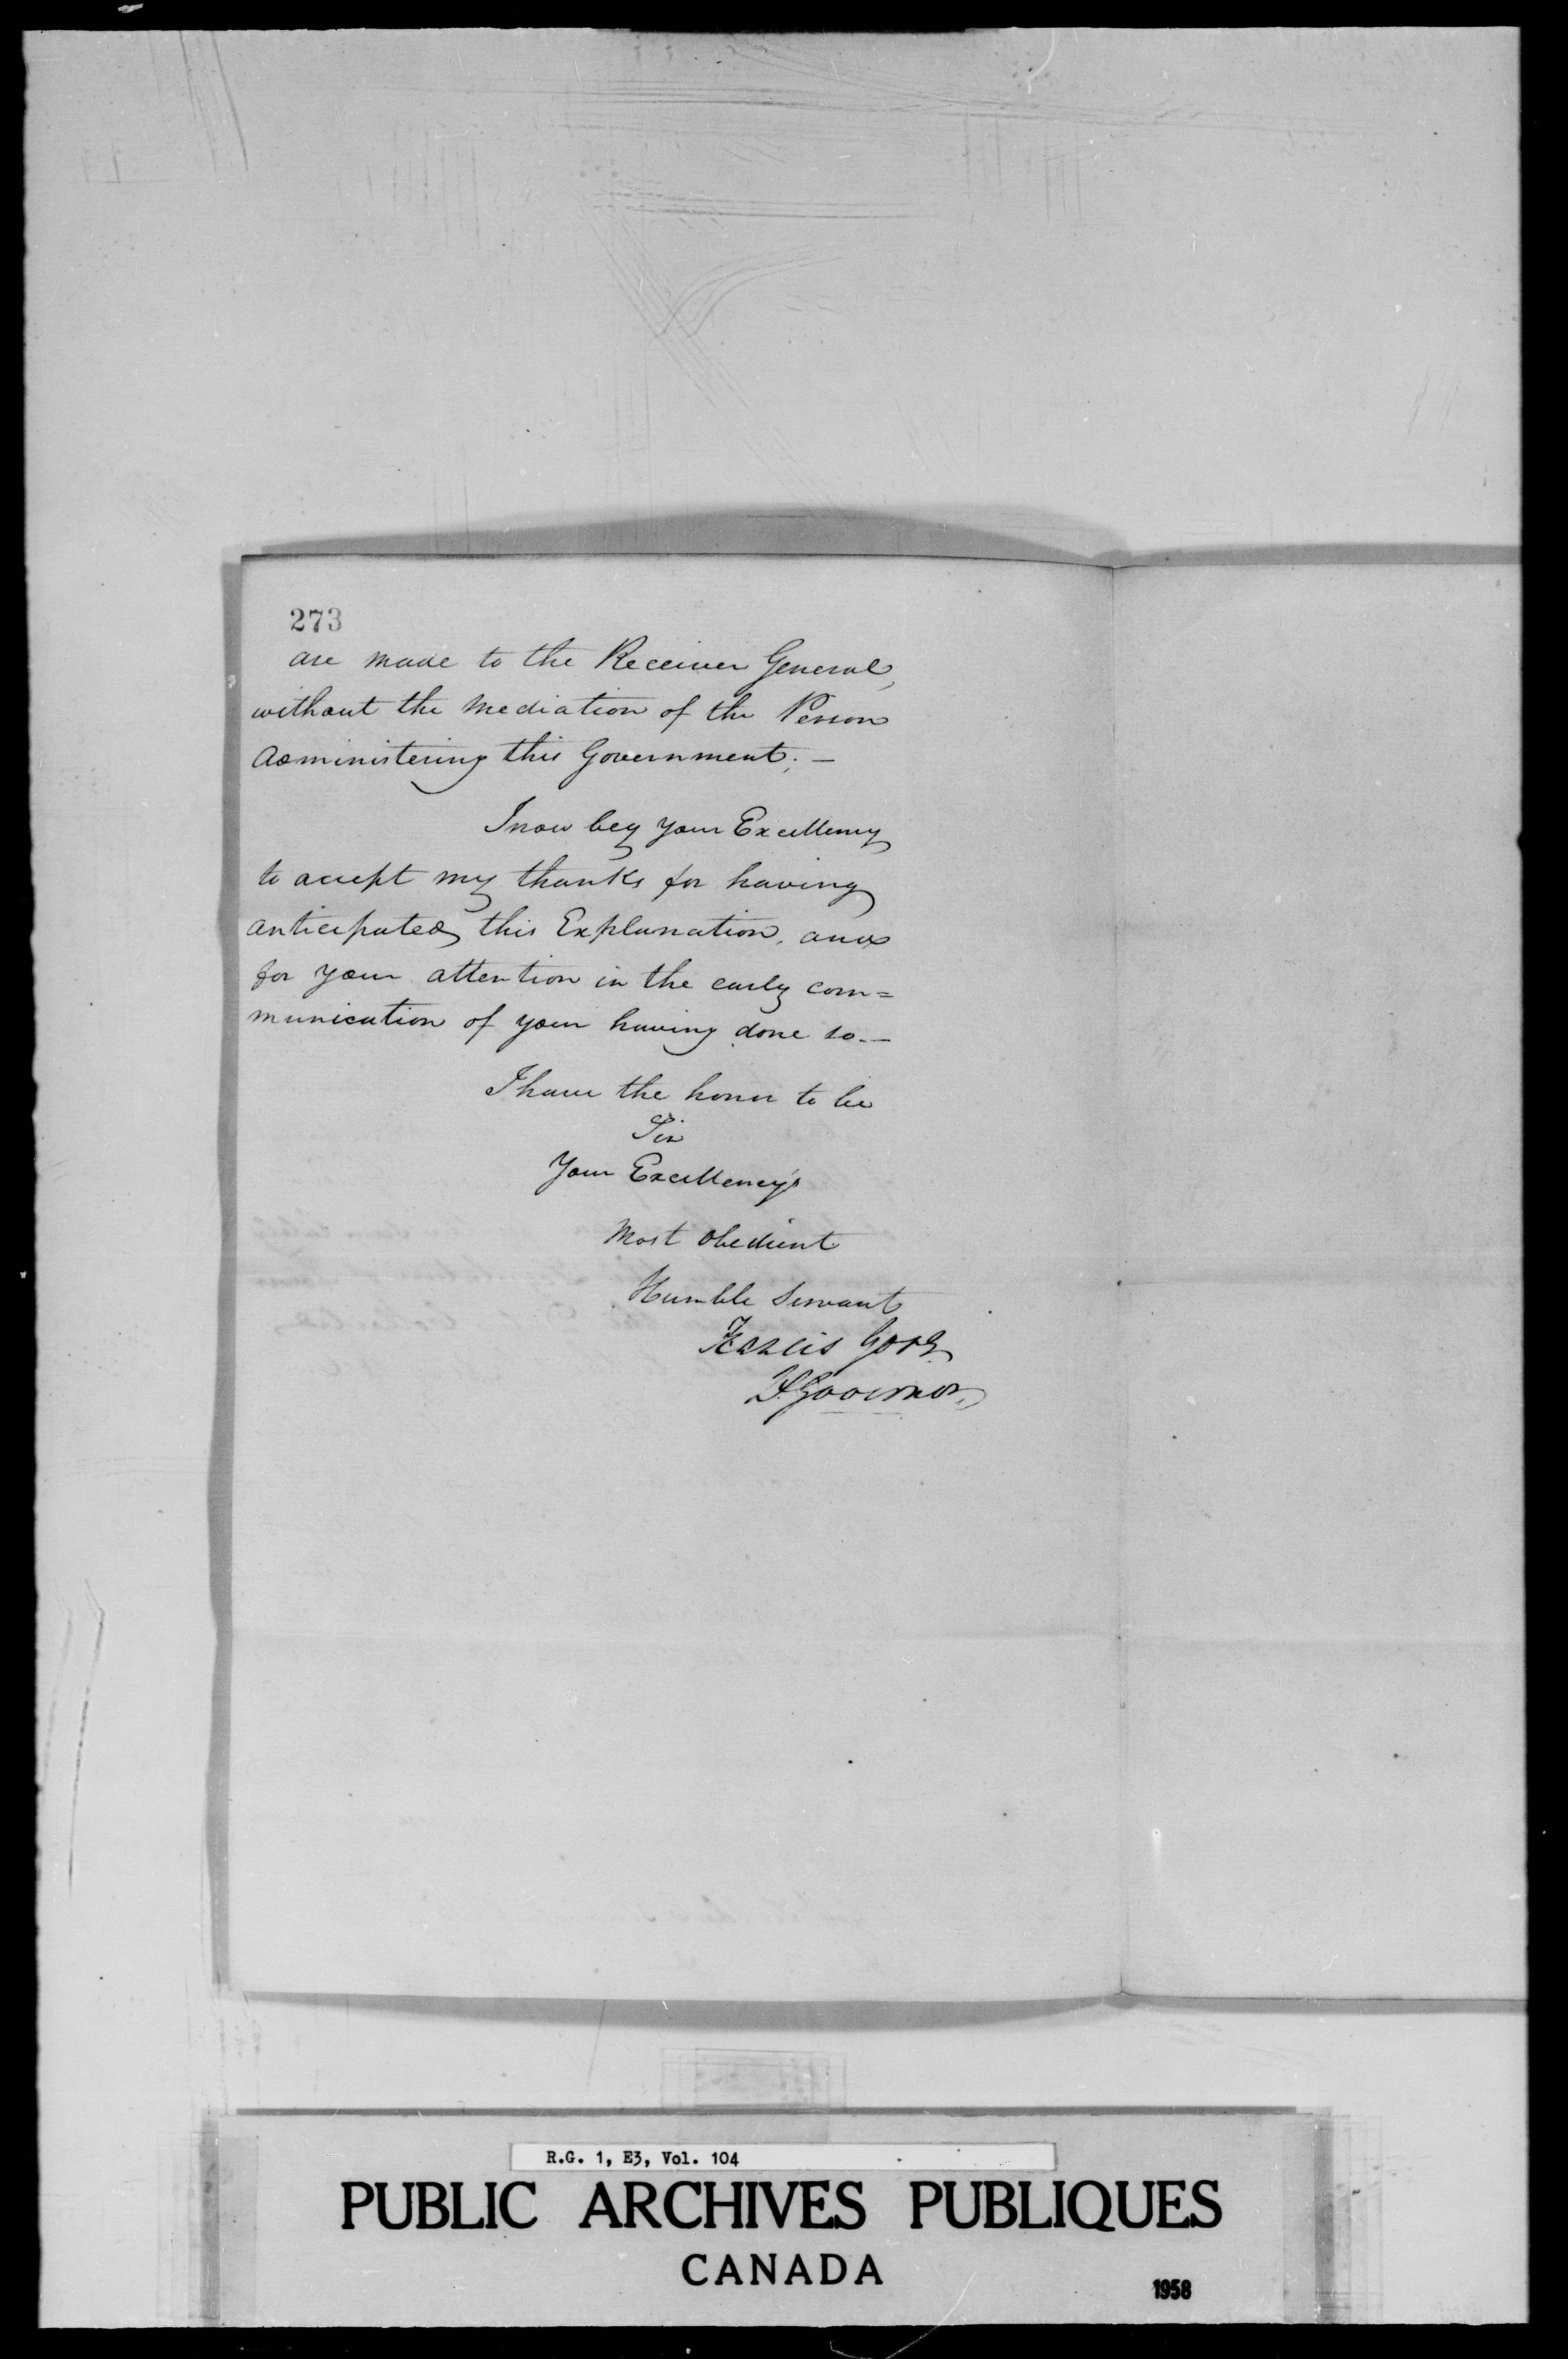 273
are made to the Receiver General,
without the Mediation of the Person
Administering this Government; —
I now beg your Excellency
to accept my thanks for having
anticipated this Explanation, and
for your attention in the early com=
munication of your having done so.—
I have the honor to be
Sir
Your Excellency's
Most Obedient
Humble Servant
Francis Gore
Lt. Governor
R.G. 1, E3, Vol. 104
PUBLIC ARCHIVES PUBLIQUES
CANADA
1958